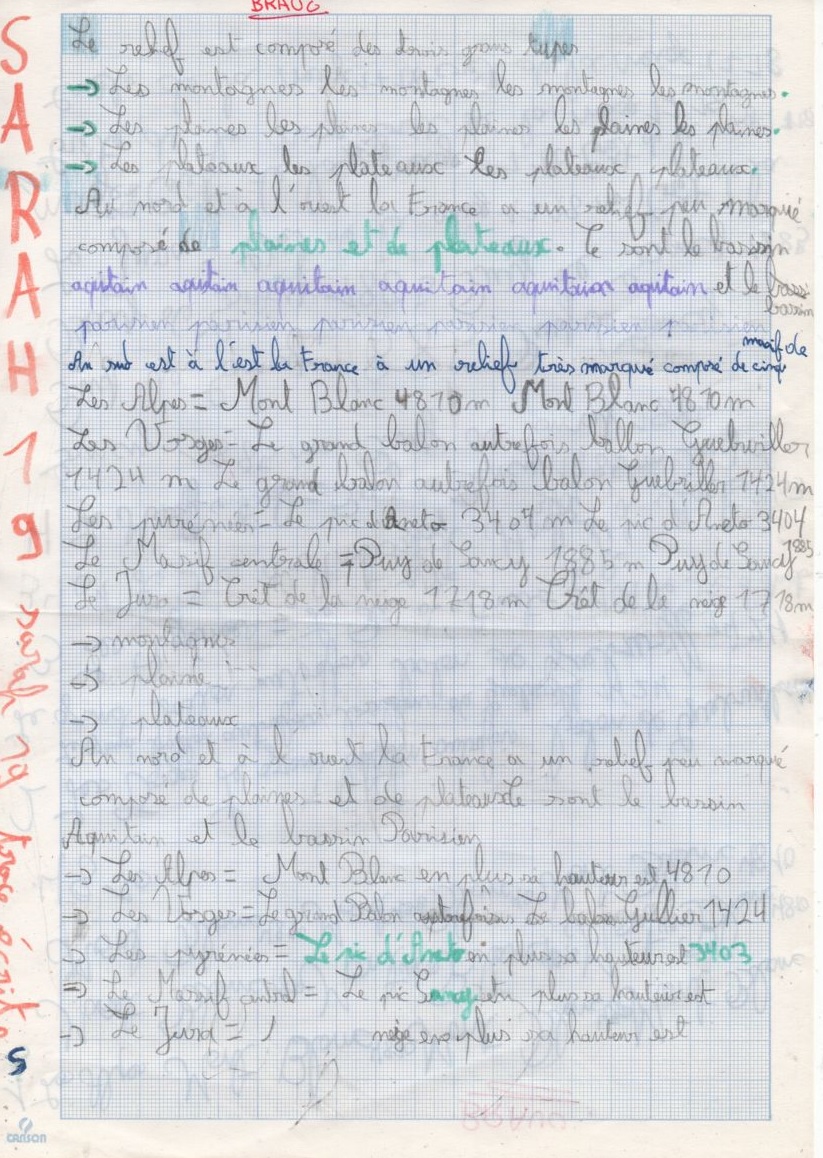 BRAUG
SARAH 19 sarah 19
Le relief est composé des trois grans types
→ Les montagnes les montagnes les montagnes les montagnes.
→ Les plaines les plaines les plaines les plaines les plaines.
→ Les plateaux les plateaux les plateaux plateaux.
Au nord et à l'ouest la France a un relief peu marqué
composé de plaines et de plateaux. Ce sont le bassin
aquitain aquitain aquitain aquitain aquitain aquitain et le bassi
bassin
parisien parisien parisien parisien parisien parisien
massif de
Au sud est à l'est la France à un relief très marqué composé de cinq
Les Alpes = Mont Blanc 4810 m Mont Blanc 4810 m
Les Vosges = Le grand balon autrefois ballon Guebwiller
1424 m Le grand balon autrefois balon Guebviller 1424 m
Les pyrénées = Le pic d'Aneto 3404 m Le pic d'Aneto 3404
Le Massif centrale = Puy de Sancy 1885 m Puy de Sancy 1885
Le Jura = Crêt de la neige 1718 m Crêt de la neige 1718 m
→ montagnes
→ plaine
→ plateaux
Au nord et à l'ouest la France a un relief peu marqué
composé de plaines et de plateaux Le sont le bassin
Aquitain et le bassin Parisien
→ Les Alpes = Mont Blanc en plus sa hauteur est 4810
→ Les Vosges = Le grand Balon Le 1424
→ Les pyrénées = Le pic d'Aneto en plus sa hauteur est 3403
→ Le Massif central = Le pic Sancy en plus sa hauteur est
→ Le Jura = neige en plus sa hauteur est
CANSON
BRAUG